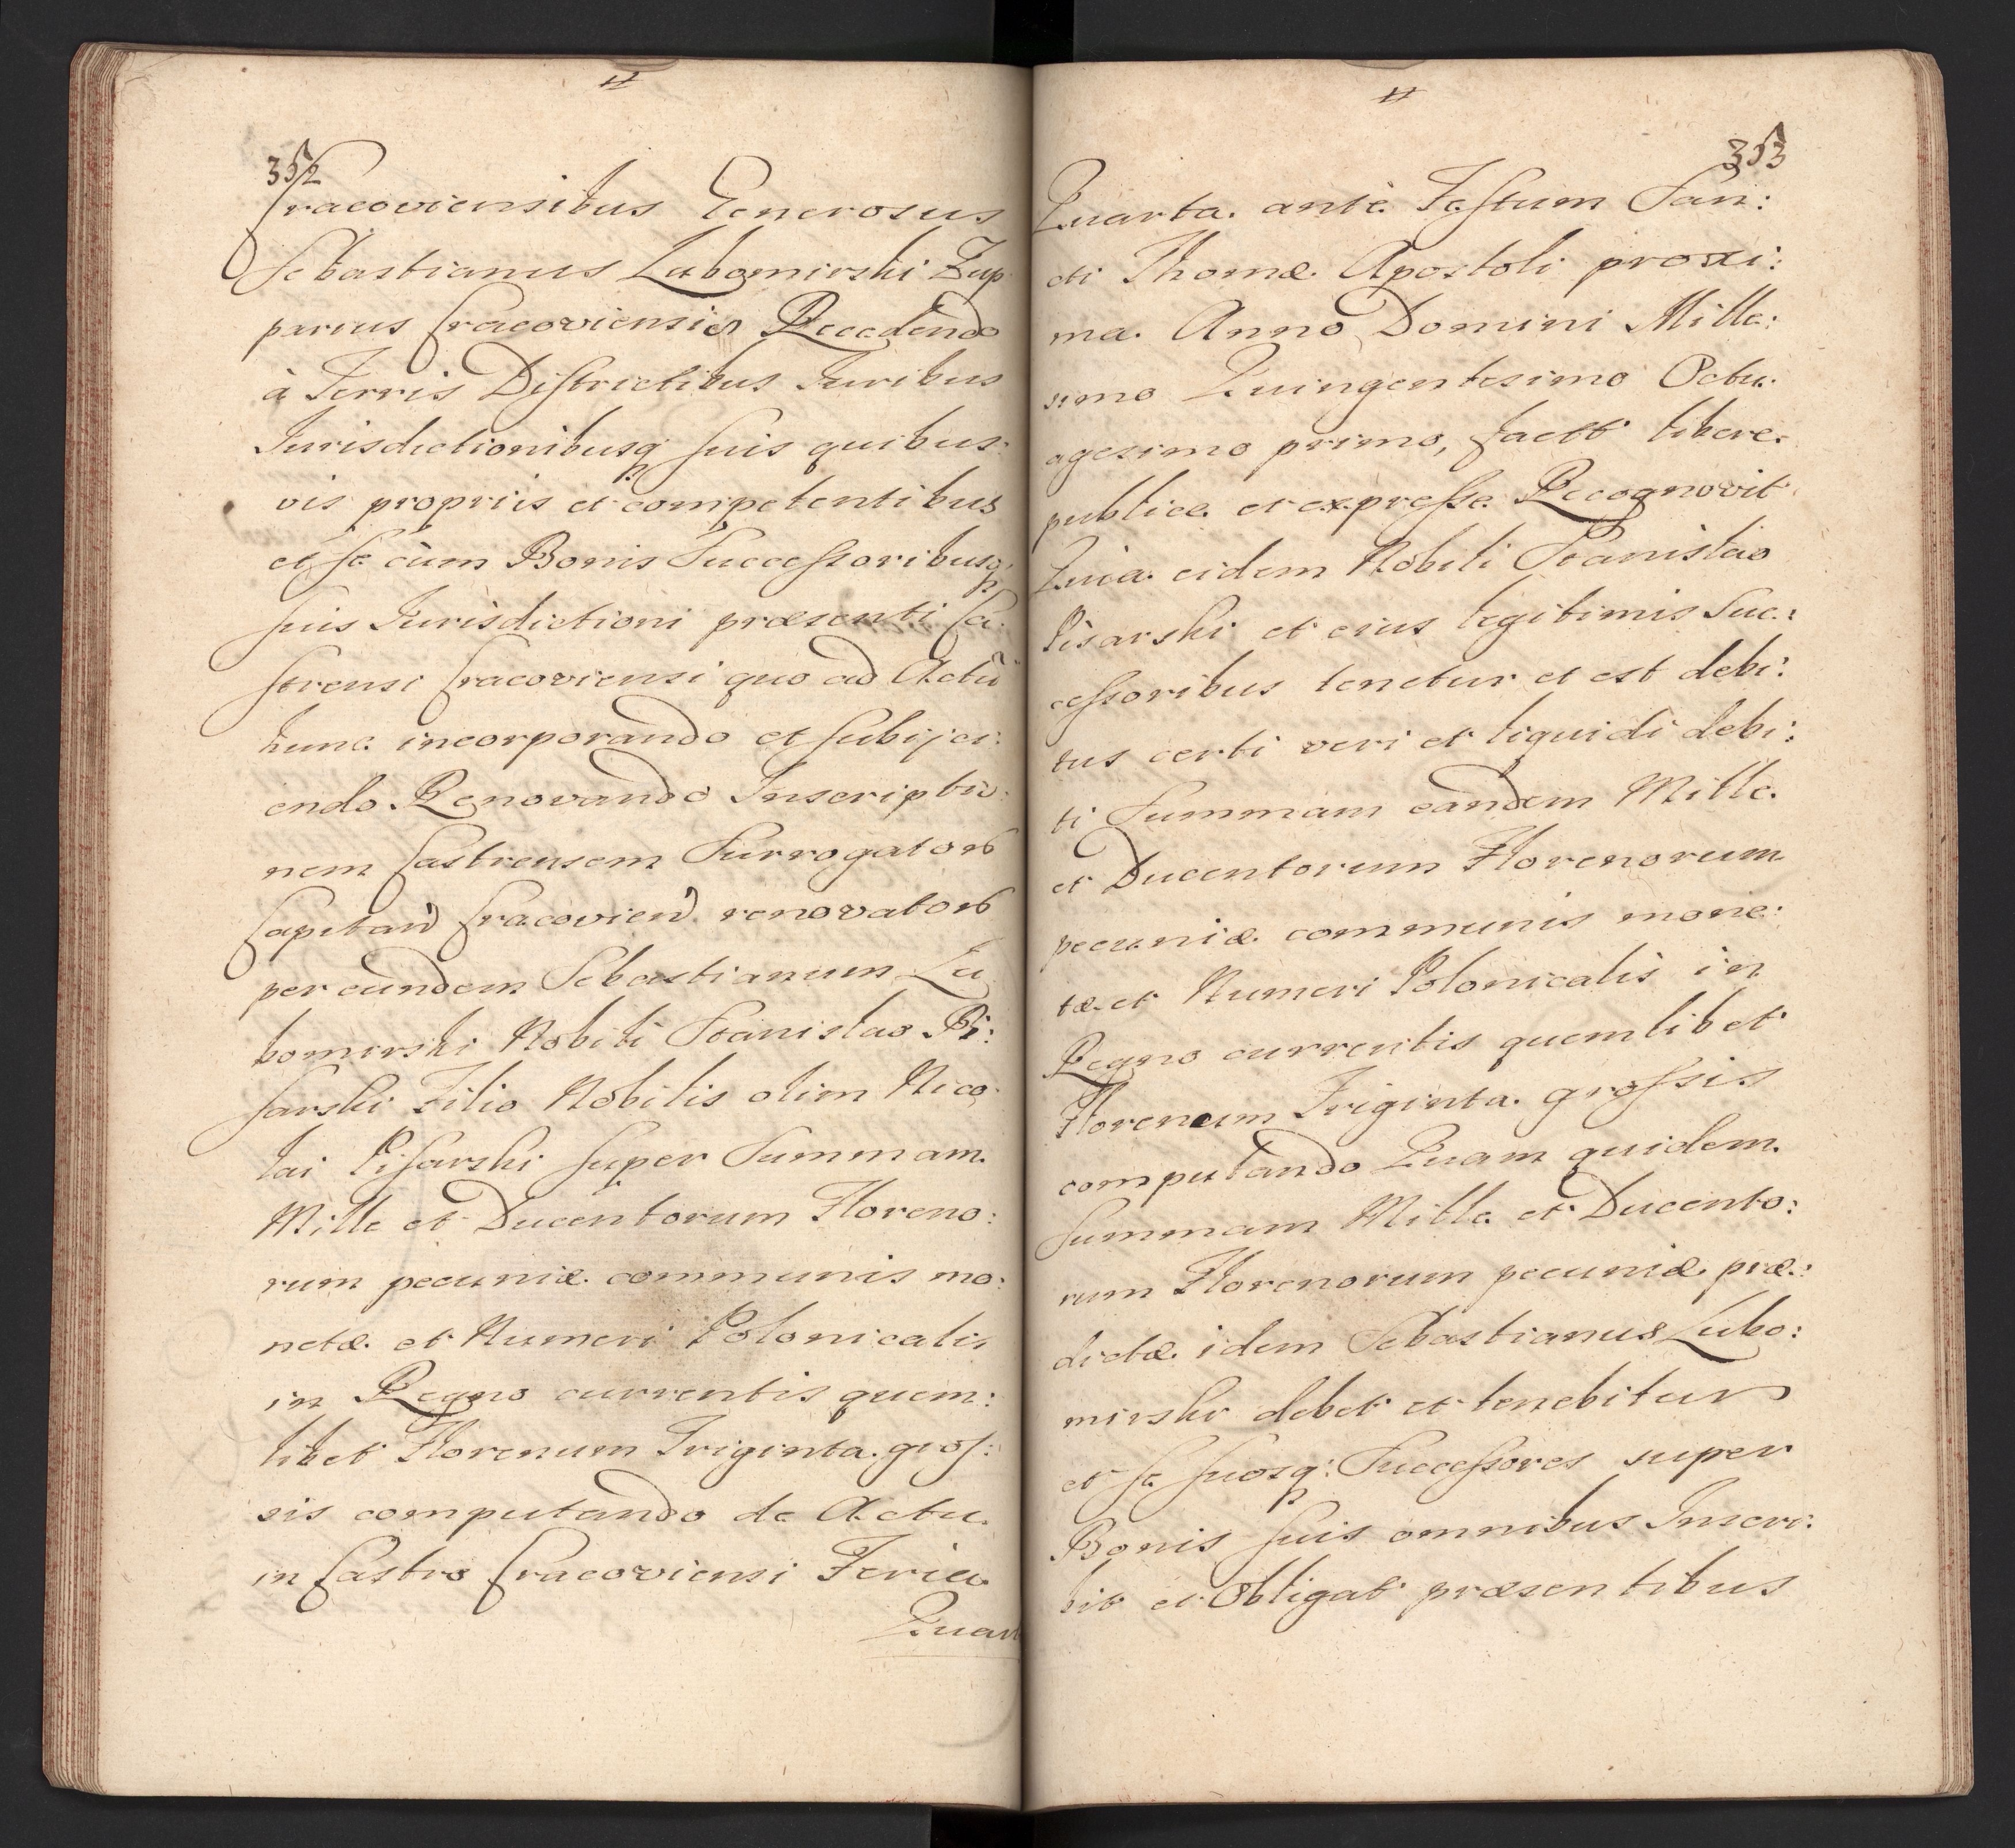 352
Cracoviensibus Generosus
Sebastianus Lubomirski Zup
parius Cracoviensies Recedendo
à Terris Districtibus Iuribus
Iurisdictionibusq suis quibus:
vis propriis et competentibus
et se cum Bonis Successoribusq:
suis Iurisdictioni præsenti Ca:
strensi Cracoviensi quo ad Actũ
hunc incorporando et subijci:
endo Renovando Inscriptio:
nem Castrensem Surrogators
Capitan Cracovien renovators
per eundem Sebastianum Lu
bomirski Nobili Stanislao Pi:
sarski Filio Nobilis olim Nico
lai Pisarski super Summam
Mille et Ducentorum Floreno:
rum pecuniæ communis mo:
netæ et Numeri Polonicalis
in Regno currentis quem:
libet Florenum Triginta gros:
sis computando de Actu
in Castro Cracoviensi Feria
Quar
353
Quarta ante Festum San:
cti Thomæ Apostoli proxi:
ma Anno Domini Mille:
simo Quingentesimo Octu
agesimo primo, factt libere
publice et expresse Recognovit
Quia eidem Nobili Stanislao
Pisarski et eius legitimis Suc:
cessoribus tenetur et est debi:
tus certi veri et liquidi debi:
ti Summam eandem Mille
et Ducentorum Florenorum
pecuniæ communis mone:
tæ et Numeri Polonicalis in
Regno currentis quemlibet
Florenum Triginta grossis
computando Quam quidem
Summam Mille et Ducento:
rum Florenorum pecuniæ præ:
dictæ idem Sebastianus Lubo:
mirski debet et tenebitur
et se suosq: Successores super
Bonis suis omnibus Inscri:
bit et Obligat præsentibus